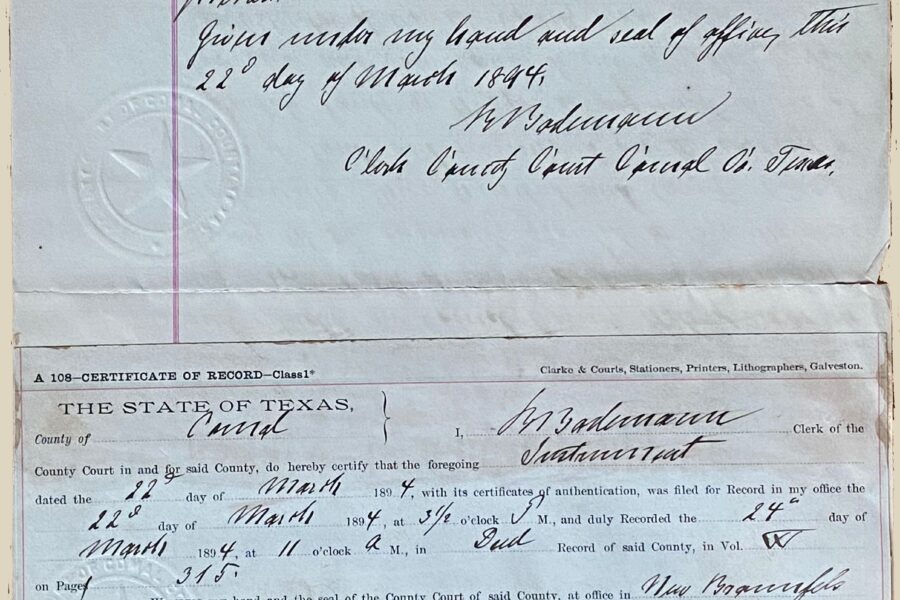 Given under my hand and seal of office, this
22d day of March 1894.
Bodemann
Clerk County Court Comal Co. Texas.
A 108—CERTIFICATE OF RECORD—Class 1*
Clarke & Courts, Stationers, Printers, Lithographers, Galveston.
THE STATE OF TEXAS,
County of Comal
I, Bodemann Clerk of the
County Court in and for said County, do hereby certify that the foregoing Instrument
dated the 22d day of March 1894, with its certificates of authentication, was filed for Record in my office the
22d day of March 1894, at 3 1/2 o'clock P M., and duly Recorded the 24th day of
March 1894, at 11 o'clock A M., in Deed Record of said County, in Vol. W
on Pages 315.
hand and the seal of the County Court of said County, at office in New Braunfels